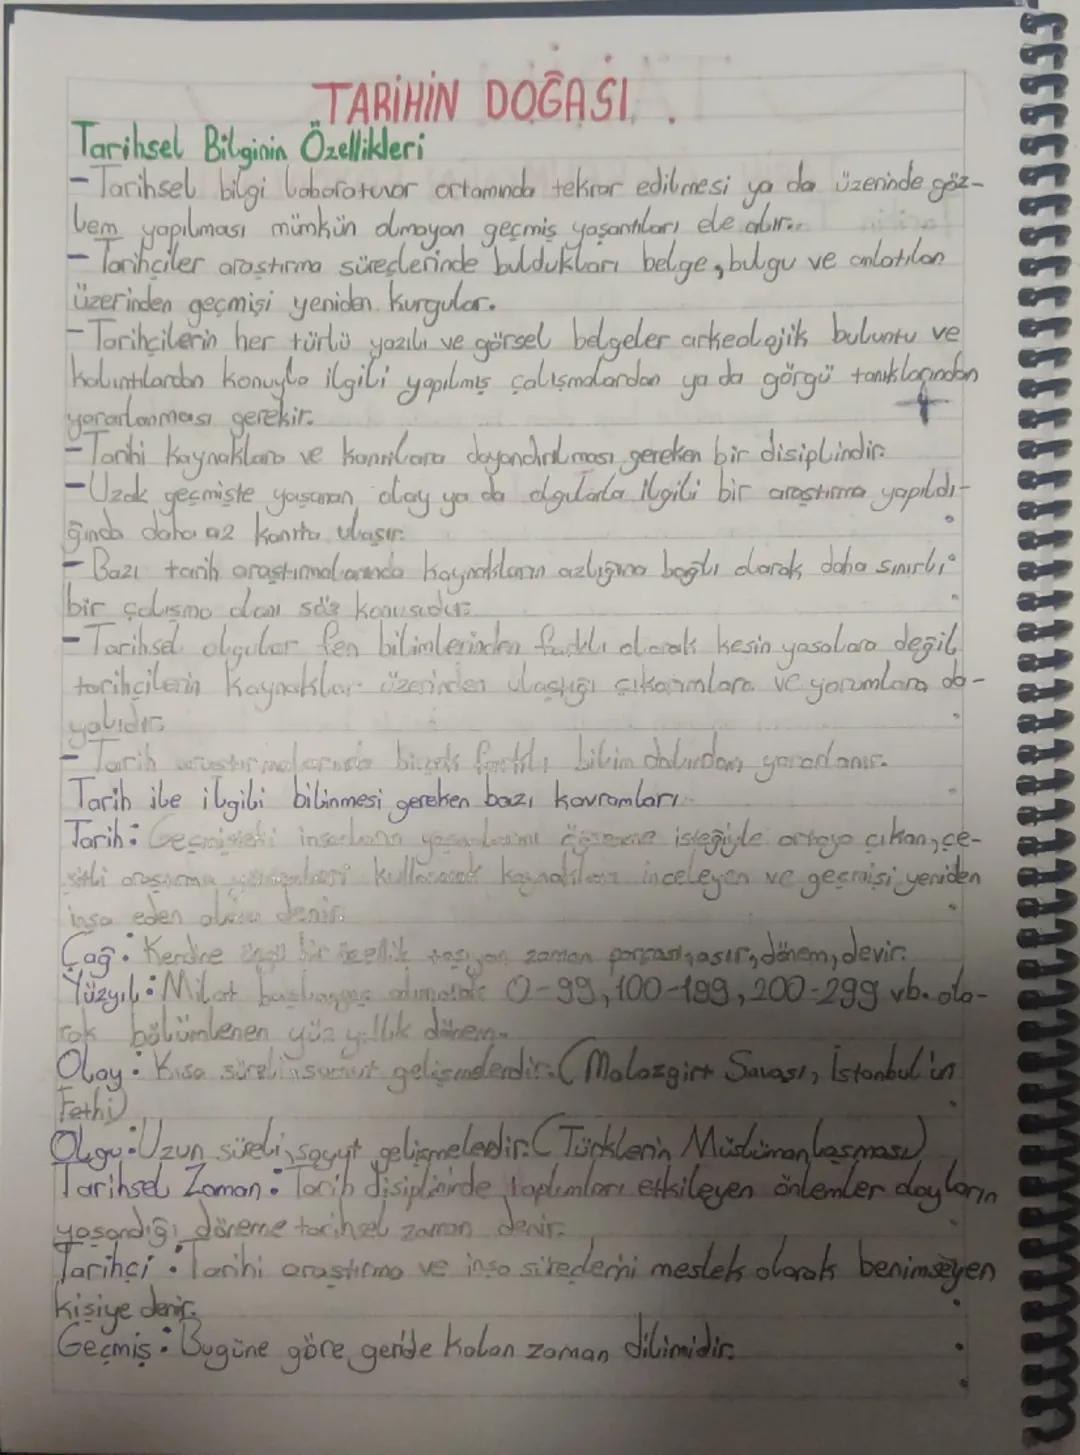 TARİHİN DOĞASI.
Tarihsel Bilginin Özellikleri
-Tarihsel bilgi laboratuvar ortamında tekrar edilmesi ya da üzerinde göz-
lem yapılması mümkün olmayan geçmiş yaşantıları ele alır.
- Tarihçiler araştırma süreçlerinde buldukları belge, bulgu ve anlatılan
üzerinden geçmişi yeniden kurgular.
-Tarihçilerin her türlü yazılı ve görsel belgeler arkeolojik buluntu ve
kalıntılardan konuyla ilgili yapılmış çalışmalardan ya da görgü tanıklarından
yararlanması gerekir.
-Tarihi kaynaklara ve kanıtlara dayandırılması gereken bir disiplindir.
-Uzak geçmişte yaşanan olay ya da olgularla ilgili bir araştırma yapıldı-
ğında daha az kanıta ulaşır.
- Bazı tarih araştırmalarında kaynakların azlığına bağlı olarak daha sınırlı
bir çalışma alanı söz konusudur.
-Tarihsel olgular fen bilimlerinden farklı olarak kesin yasalara değil
tarihçilerin kaynaklar üzerinden ulaştığı çıkarımlara ve yorumlara da-
yalıdır.
- Tarih araştırmalarında birçok farklı bilim dalından yararlanır.
Tarih ile ilgili bilinmesi gereken bazı kavramları
Tarih: Geçmişteki insanların yaşamlarını öğrenme isteğiyle ortaya çıkan, çe-
şitli araştırma yöntemleri kullanarak kaynakları inceleyen ve geçmişi yeniden
inşa eden denir.
Çağ: Kendine özgü bir özellik taşıyan zaman parçası, asır, dönem, devir.
Yüzyıl: Milat başlangıç alınarak 0-99, 100-199, 200-299 vb. ola-
rak bölümlenen yüz yıllık dönem.
Olay: Kısa süreli, somut gelişmelerdir. (Malazgirt Savaşı, İstanbul'un
Fethi)
Olgu: Uzun süreli, soyut gelişmelerdir. (Türklerin Müslümanlaşması)
Tarihsel Zaman: Tarih disiplininde toplumları etkileyen önlemler olayların
yaşandığı döneme tarihsel zaman denir.
Tarihçi: Tarihi araştırma ve inşa süreçlerini meslek olarak benimseyen
kişiye denir.
Geçmiş: Bugüne göre geride kalan zaman dilimidir.